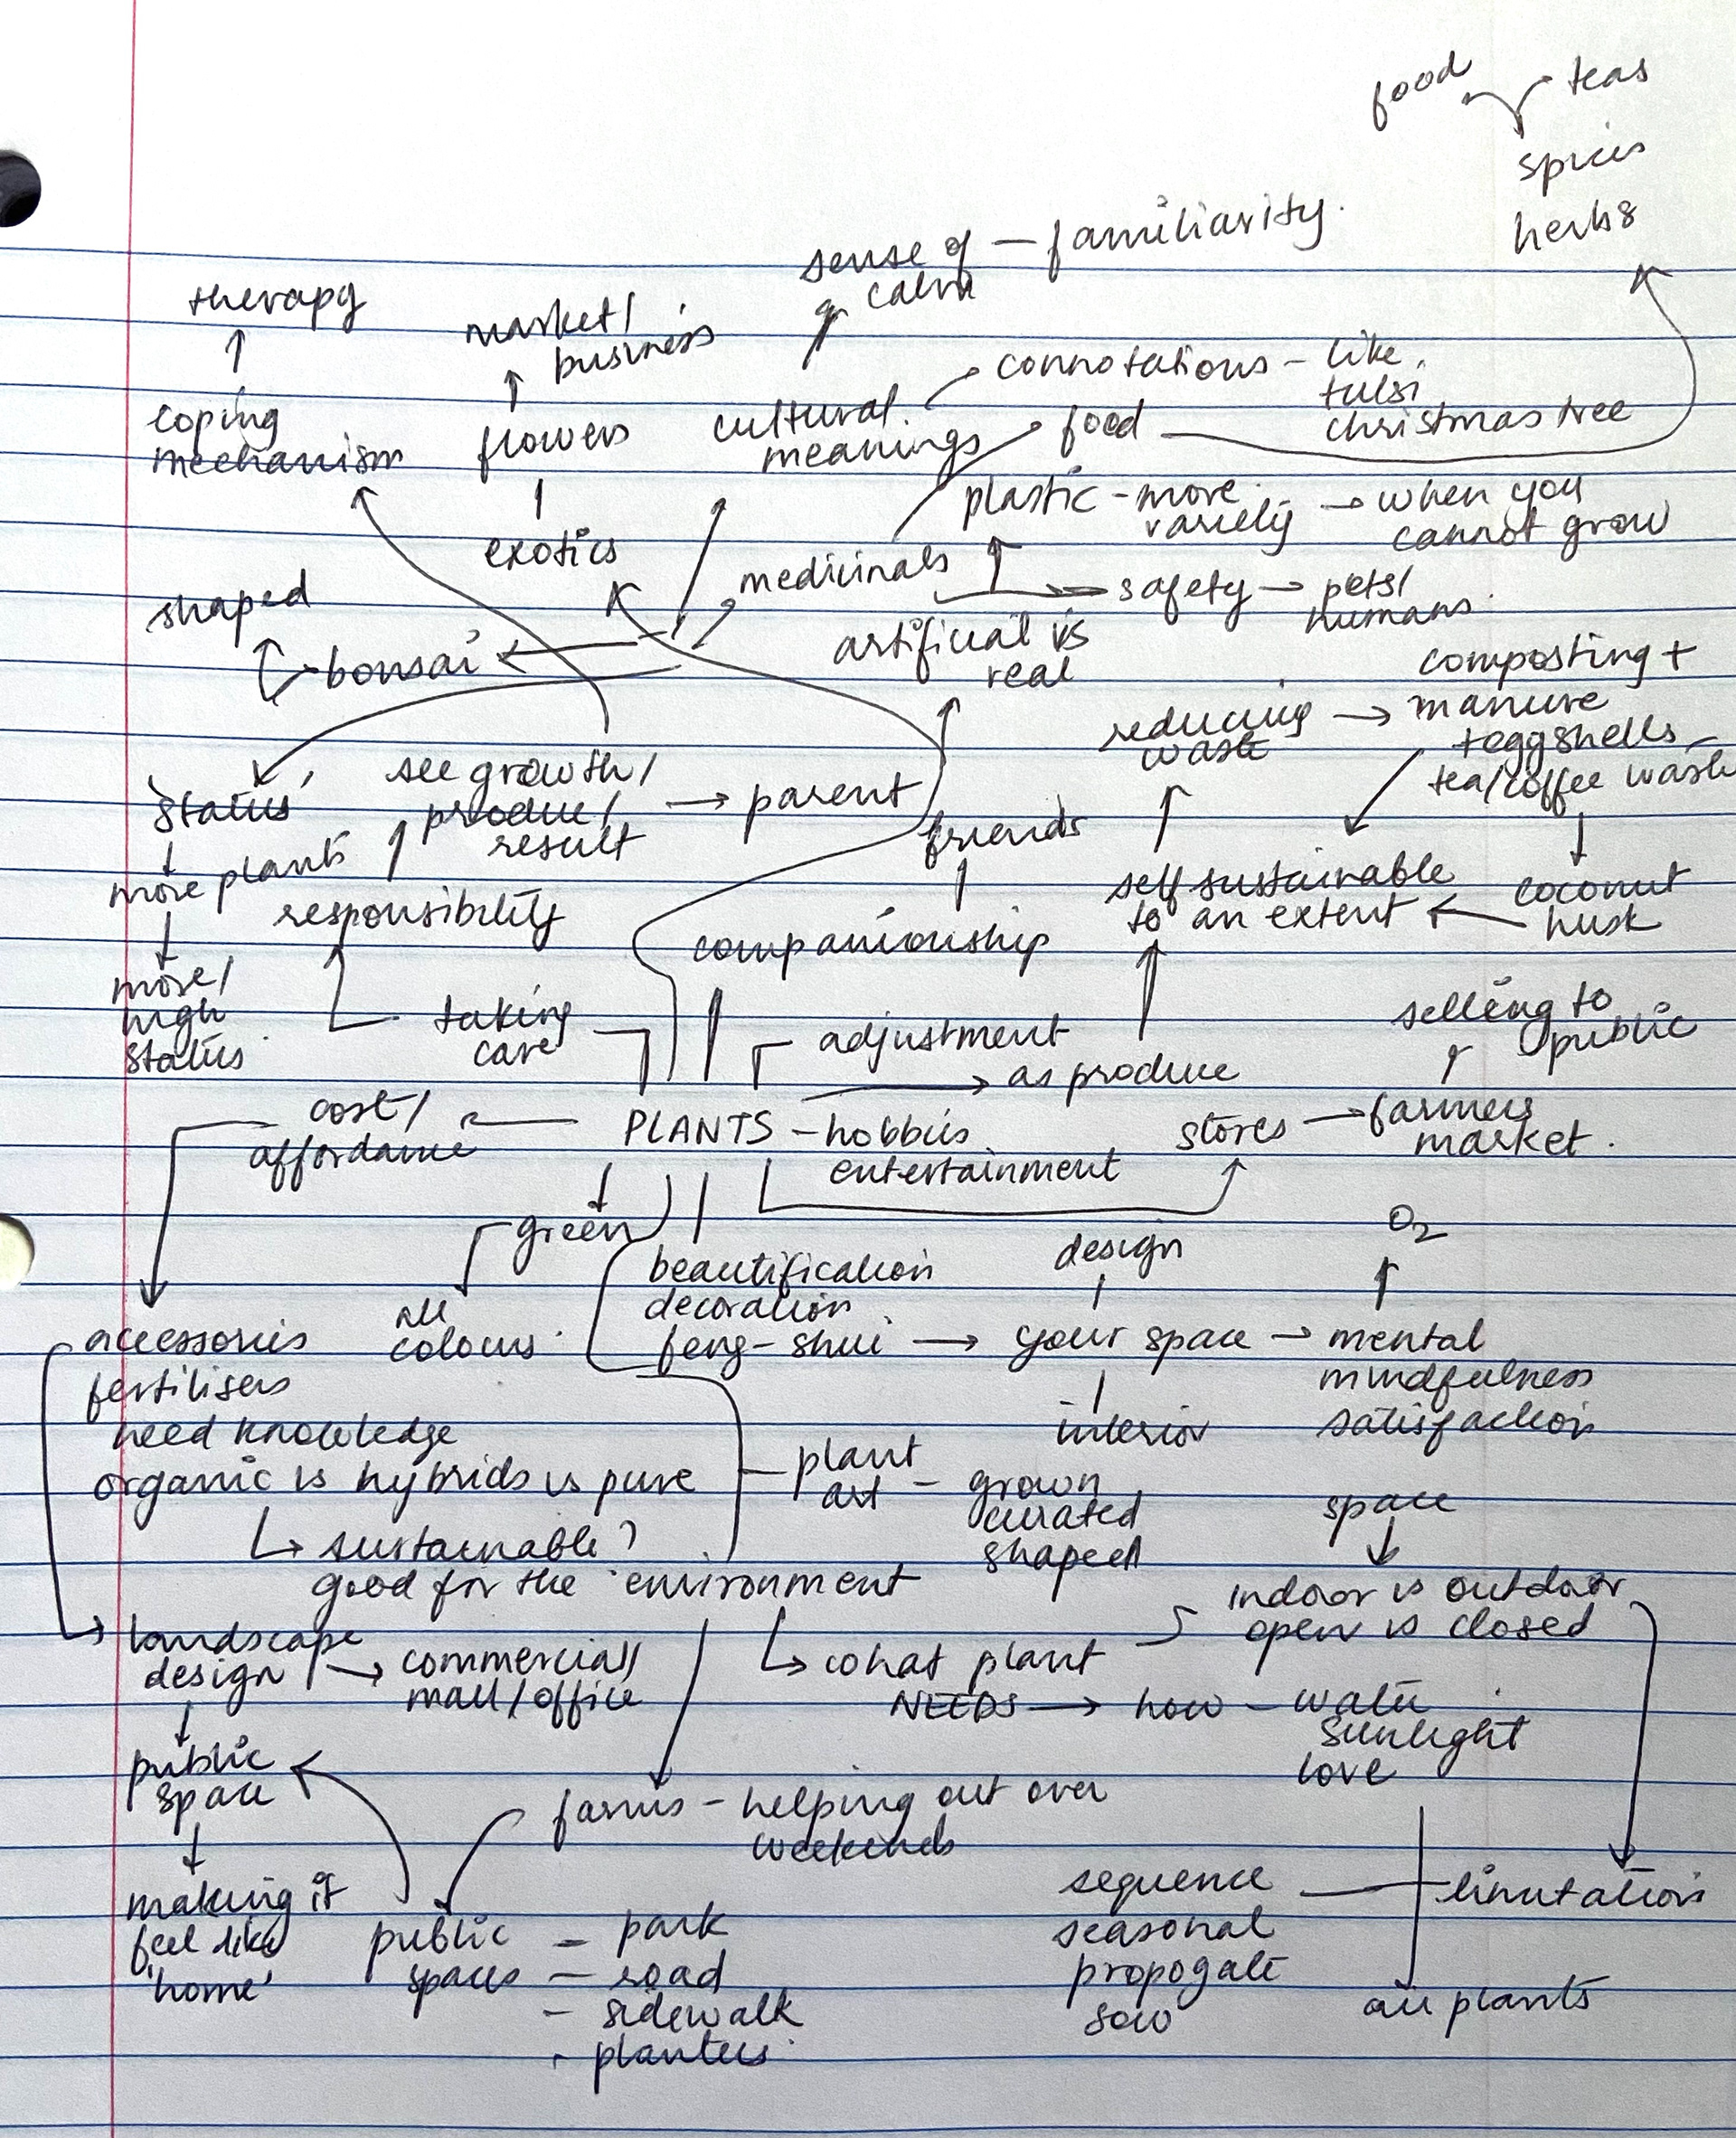 food
teas
spices
herbs
sense of — familiarity.
calm
therapy
market/
business
coping
mechanism
flowers
exotics
cultural
meanings
connotations - like
tulsi
christmas tree
food
plastic - more
variety → when you
cannot grow
medicinals
safety → pets/
humans.
artificial vs
real
shaped
bonsai
composting +
manure
+eggshells
tea/coffee waste
reducing
waste
'status'
see growth/
produce/
result
→ parent
friends
more plants
responsibility
self sustainable
to an extent
coconut
husk
companionship
more/
high
status
taking
care
adjustment
as produce
selling to
public
cost/
affordance
PLANTS - hobbies
entertainment
stores
farmers
market.
green
all
colours
beautification
decoration
feng-shui → your space → mental
mindfulness
satisfaction
design
O2
interior
accessories
fertilisers
need knowledge
organic vs hybrids vs pure
↳ sustainable?
good for the environment
plant
art - grown
curated
shaped
space
indoor vs outdoor
open vs closed
landscape
design → commercial/
mall/office
what plant
NEEDS → how - water
sunlight
love
public
space
farms - helping out over
weekends
making it
feel like
'home'
public
spaces
- park
- road
- sidewalk
- planters
sequence
seasonal
propogate
sow
limitation
air plants